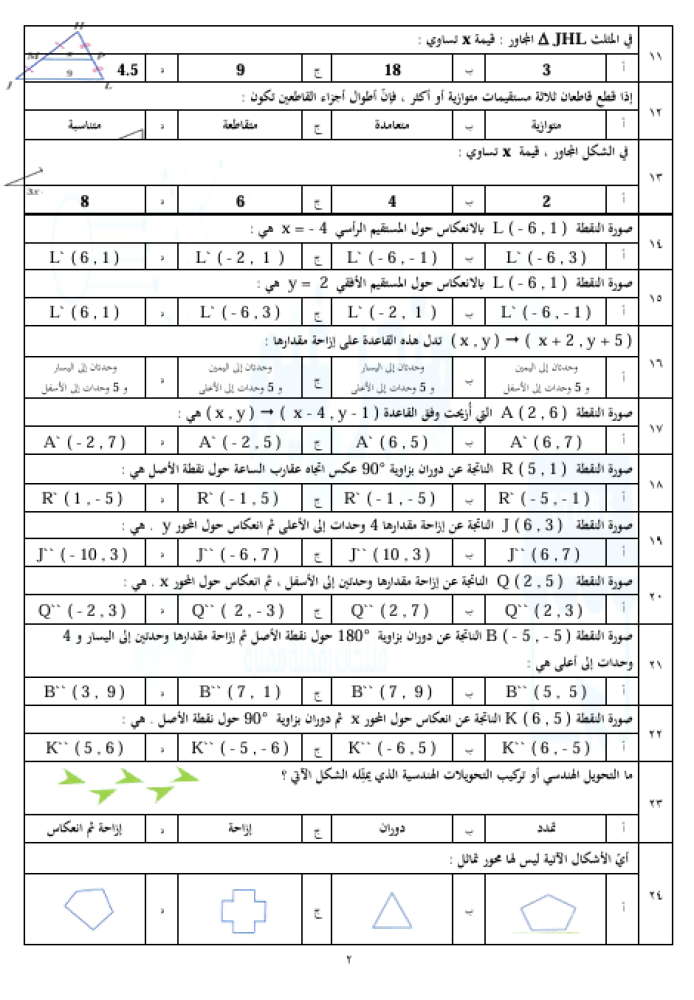 ١١ في المثلث JHL Δ المجاور : قيمة x تساوي :
أ 3 ب 18 ج 9 د 4.5
H M x P 9 J L
١٢ إذا قطع قاطعان ثلاثة مستقيمات متوازية أو أكثر ، فإنّ أطوال أجزاء القاطعين تكون :
أ متوازية ب متعامدة ج متقاطعة د متناسبة
١٣ في الشكل المجاور ، قيمة x تساوي :
3x
أ 2 ب 4 ج 6 د 8
١٤ صورة النقطة L ( - 6 , 1 ) بالانعكاس حول المستقيم الرأسي x = - 4 هي :
أ L` ( - 6 , 3 ) ب L` ( - 6 , - 1 ) ج L` ( - 2 , 1 ) د L` ( 6 , 1 )
١٥ صورة النقطة L ( - 6 , 1 ) بالانعكاس حول المستقيم الأفقي y = 2 هي :
أ L` ( - 6 , - 1 ) ب L` ( - 2 , 1 ) ج L` ( - 6 , 3 ) د L` ( 6 , 1 )
١٦ ( x , y ) → ( x + 2 , y + 5 ) تدل هذه القاعدة على إزاحة مقدارها :
أ وحدتان إلى اليمين و 5 وحدات إلى الأسفل ب وحدتان إلى اليسار و 5 وحدات إلى الأعلى ج وحدتان إلى اليمين و 5 وحدات إلى الأعلى د وحدتان إلى اليسار و 5 وحدات إلى الأسفل
١٧ صورة النقطة A ( 2 , 6 ) التي أُزيحت وفق القاعدة ( x , y ) → ( x - 4 , y - 1 ) هي :
أ A` ( 6 , 7 ) ب A` ( 6 , 5 ) ج A` ( - 2 , 5 ) د A` ( - 2 , 7 )
١٨ صورة النقطة R ( 5 , 1 ) الناتجة عن دوران بزاوية 90° عكس اتجاه عقارب الساعة حول نقطة الأصل هي :
أ R` ( - 5 , - 1 ) ب R` ( - 1 , - 5 ) ج R` ( - 1 , 5 ) د R` ( 1 , - 5 )
١٩ صورة النقطة J ( 6 , 3 ) الناتجة عن إزاحة مقدارها 4 وحدات إلى الأعلى ثم انعكاس حول المحور y . هي :
أ J`` ( 6 , 7 ) ب J`` ( 10 , 3 ) ج J`` ( - 6 , 7 ) د J`` ( - 10 , 3 )
٢٠ صورة النقطة Q ( 2 , 5 ) الناتجة عن إزاحة مقدارها وحدتين إلى الأسفل ، ثم انعكاس حول المحور x . هي :
أ Q`` ( 2 , 3 ) ب Q`` ( 2 , 7 ) ج Q`` ( 2 , - 3 ) د Q`` ( - 2 , 3 )
٢١ صورة النقطة B ( - 5 , - 5 ) الناتجة عن دوران بزاوية 180° حول نقطة الأصل ثم إزاحة مقدارها وحدتين إلى اليسار و 4
وحدات إلى أعلى هي :
أ B`` ( 5 , 5 ) ب B`` ( 7 , 9 ) ج B`` ( 7 , 1 ) د B`` ( 3 , 9 )
٢٢ صورة النقطة K ( 6 , 5 ) الناتجة عن انعكاس حول المحور x ثم دوران بزاوية 90° حول نقطة الأصل . هي :
أ K`` ( 6 , - 5 ) ب K`` ( - 6 , 5 ) ج K`` ( - 5 , - 6 ) د K`` ( 5 , 6 )
٢٣ ما التحويل الهندسي أو تركيب التحويلات الهندسية الذي يمثّله الشكل الآتي ؟
أ تمدد ب دوران ج إزاحة د إزاحة ثم انعكاس
٢٤ أيّ الأشكال الآتية ليس لها محور تماثل :
أ ب ج د
٢